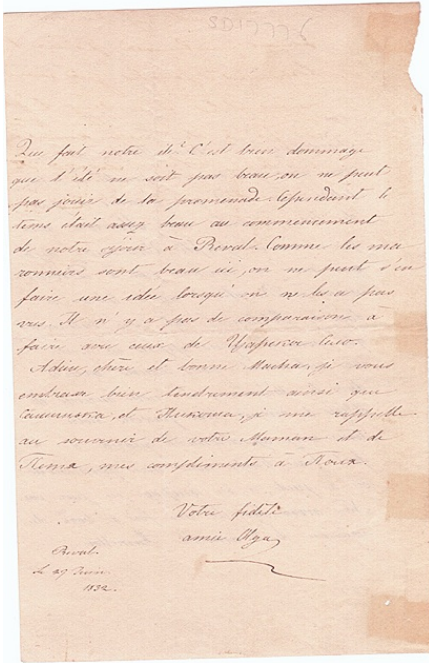 Que fait notre
C'est bien dommage
que l'été ne soit pas beau, on ne peut
pas jouir de la promenade. Cependant le
tems était assez beau au commencement
de notre séjour à Reval. Comme les ma
ronniers sont beau ici, on ne peut s'en
faire une idée lorsqu'on ne les a pas
vus. Il n'y a pas de comparaison à
faire avec ceux de
Adieu, chère et bonne Macha, je vous
embrasse bien tendrement ainsi que
et
je me rappelle
au souvenir de votre Maman et de
mes compliments à
Votre fidèle
amie Olga
Reval.
le 27
1832.